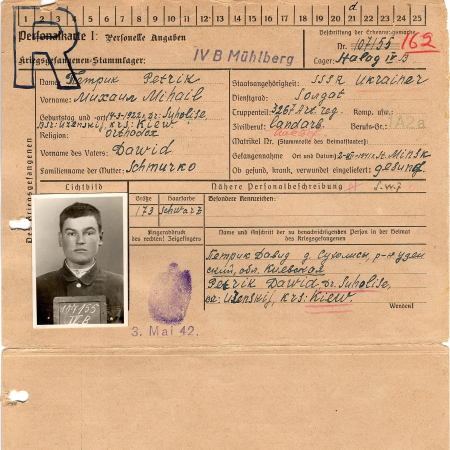 1 2 3 4 5 6 7 8 9 10 11 12 13 14 15 16 17 18 19 20 21 22 23 24 25
R
Personalkarte I: Personelle Angaben
Kriegsgefangenen-Stammlager:
IV B Mühlberg
Beschriftung der Erkennungsmarke
Nr. 107155 162
Lager: Stalag IV B
Des Kriegsgefangenen
Name: Петрик Petrik
Vorname: Михаил Mihail
Geburtstag und -ort 1922
Kiew
Religion: Orthodox
Vorname des Vaters: Dawid
Familienname der Mutter: Schmurko
Staatsangehörigkeit: SSSR Ukrainer
Dienstgrad: Soldat
Truppenteil: Komp. usw.:
Zivilberuf: Landarb. Berufs-Gr.:
Matrikel Nr. (Stammrolle des Heimatstaates):
Gefangennahme (Ort und Datum): Minsk
Ob gesund, krank, verwundet eingeliefert: gesund
Lichtbild
Nähere Personalbeschreibung
Größe Haarfarbe Besondere Kennzeichen:
173 Schwarz
Fingerabdruck
des rechten! Zeigefingers
Name und Anschrift der zu benachrichtigenden Person in der Heimat
des Kriegsgefangenen
Петрик Давид
обл. Киевская
Petrik Dawid Suholise,
krs: Kiew
Wenden!
107155
IV B
3. Mai 42.